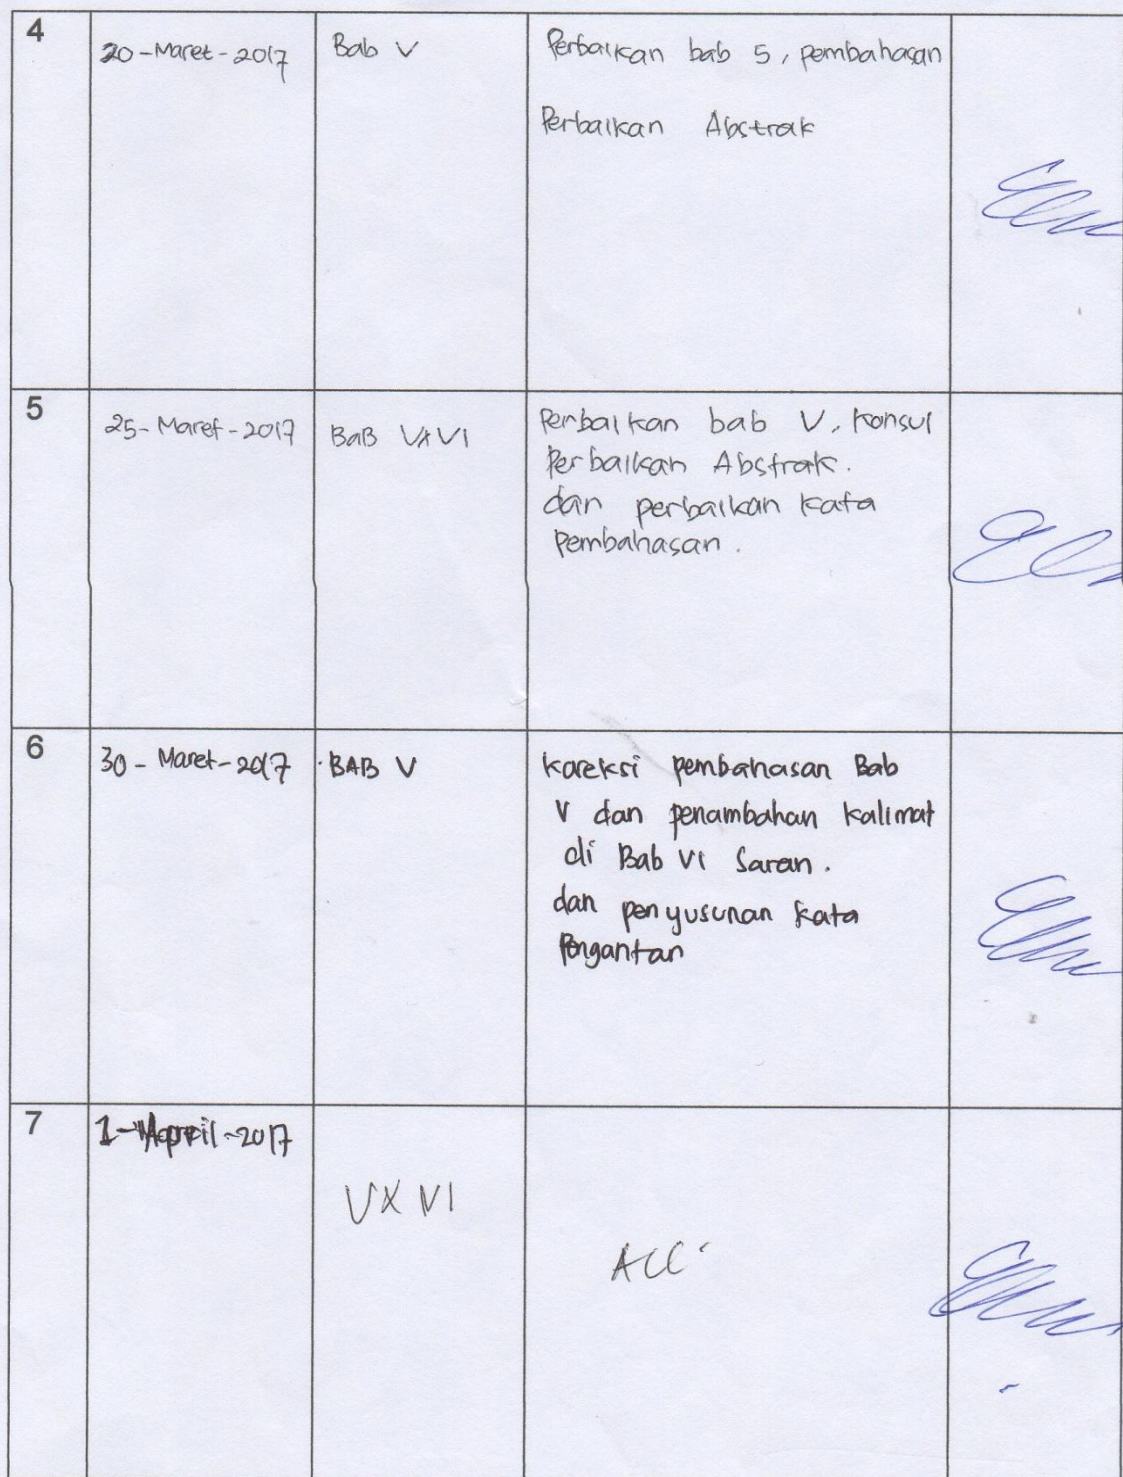 4 20-Maret-2017 Bab V Perbaikan bab 5, pembahasan
Perbaikan Abstrak
5 25-Maret-2017 BaB V & VI Perbaikan bab V, Konsul
Perbaikan Abstrak.
dan perbaikan Kata
Pembahasan.
6 30-Maret-2017 BAB V Koreksi pembahasan Bab
V dan penambahan Kalimat
di Bab VI Saran.
dan penyusunan Kata
Pengantan
7 1-April-2017
V & VI
ACC